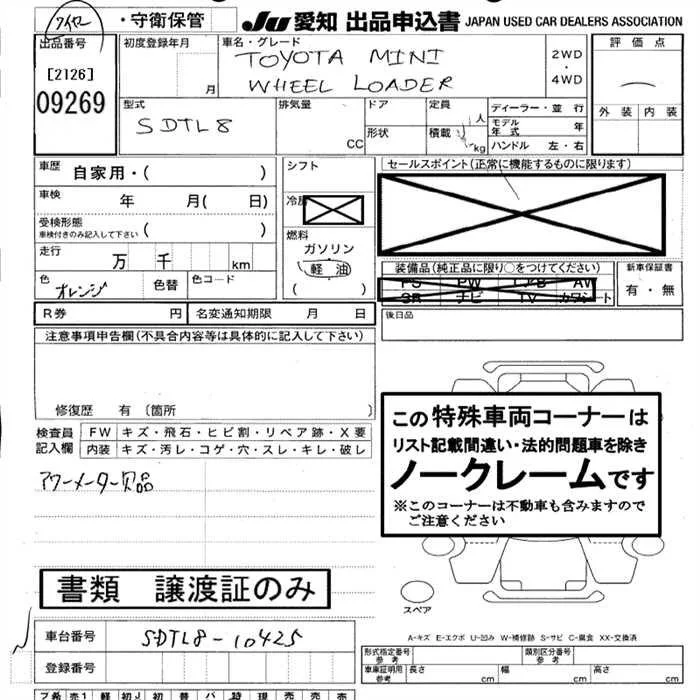 ・守衛保管
JU 愛知 出品申込書 JAPAN USED CAR DEALERS ASSOCIATION
出品番号
[2126]
09269
初度登録年月
月
車名・グレード
TOYOTA MINI
WHEEL LOADER
2WD
・
4WD
評価点
外装 内装
型式
SDTL8
排気量
CC
ドア
形状
定員
人
積載
kg
ディーラー・並 行
モデル年式 年
ハンドル 左・右
車歴 自家用・( )
車検 年 月( 日)
受検形態
車検付きのみ記入して下さい ( )
走行 万 千 km
色 オレンジ 色替 色コード
シフト
冷房
燃料
ガソリン
軽油
( )
セールスポイント(正常に機能するものに限ります)
装備品(純正品に限り○をつけてください)
PS PW エアB AW
SR ナビ TV カワシート
新車保証書
有・無
後日品
R券 円 名変通知期限 月 日
注意事項申告欄(不具合内容等は具体的に記入して下さい)
修復歴 有 〔箇所 〕
検査員記入欄
FW キズ・飛石・ヒビ割・リペア跡・X要
内装 キズ・汚レ・コゲ・穴・スレ・キレ・破レ
アワーメーター欠品
この特殊車両コーナーは
リスト記載間違い・法的問題車を除き
ノークレームです
※このコーナーは不動車も含みますので
ご注意ください
書類 譲渡証のみ
スペア
A-キズ E-エクボ U-凹み W-補修跡 S-サビ C-腐食 XX-交換済
車台番号 SDTL8-10425
登録番号
形式指定番号
参考
類別区分番号
参考
車庫証明用
参考
長さ cm 幅 cm 高さ cm